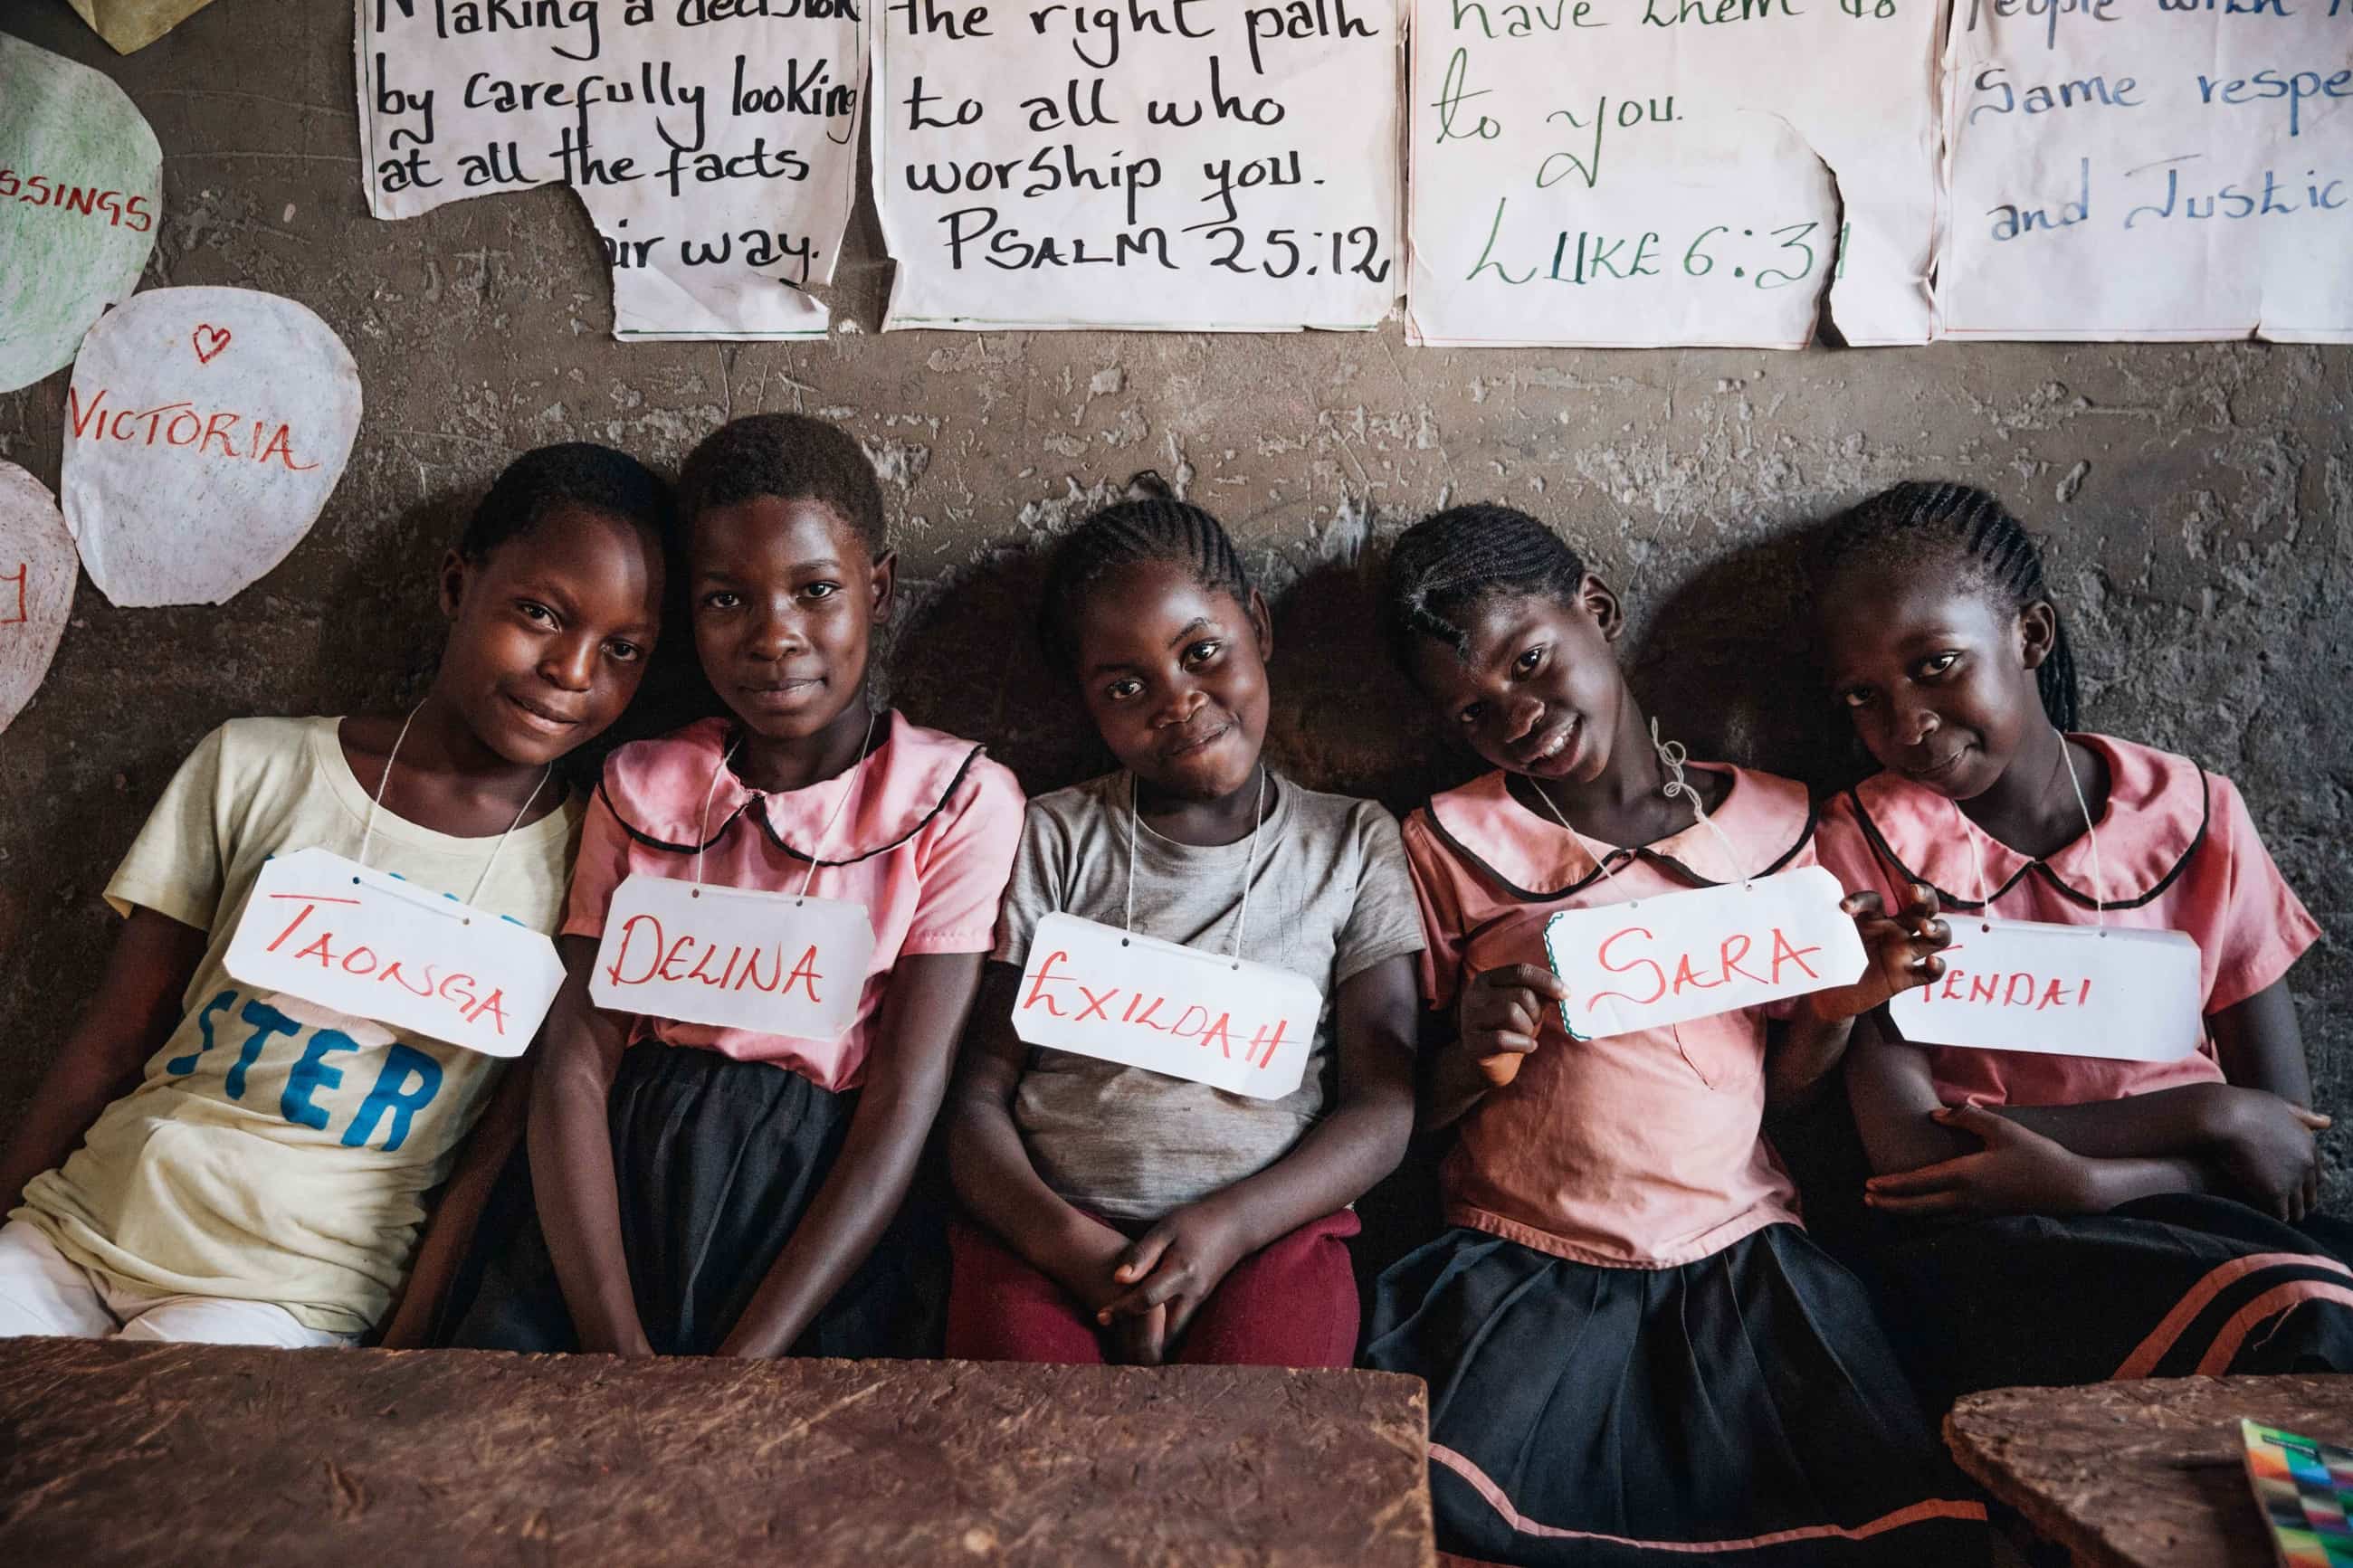 Making a decision
by carefully looking
at all the facts
way.
the right path
to all who
worship you.
PSALM 25:12
have them do
to you.
LUKE 6:31
People with
Same
and
VICTORIA
TAONGA
STER
DELINA
EXILDAH
SARA
TENDAI